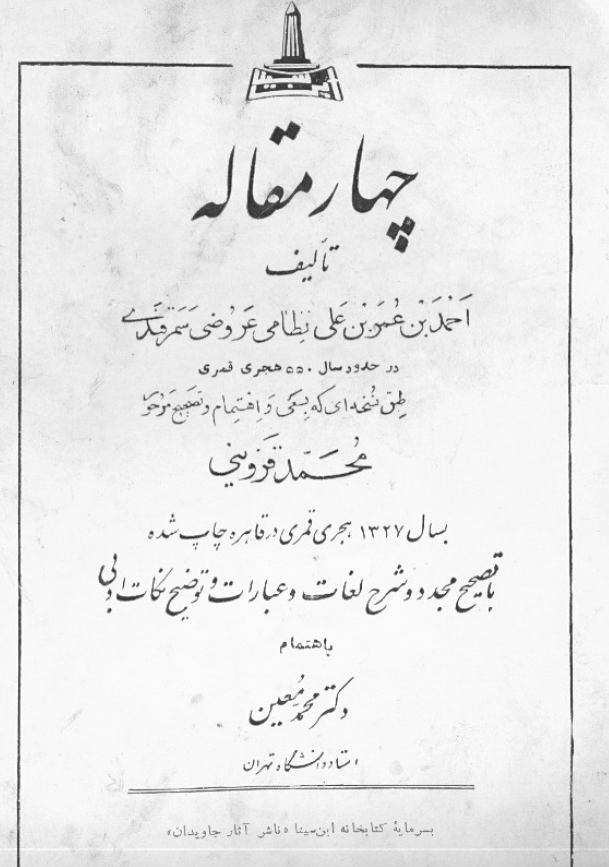 چهار مقاله
تألیف
اَحمَد بْن عُمَر بْن عَلی نِظامی عَروضی سَمَرقَندی
در حدود سال ۵۵۰ هجری قمری
طبق نُسخه‌ای که بِسَعی وَ اِهتِمام و تصحیح مرحوم
مُحَمَّد قزوینی
بسال ۱۳۲۷ هجری قمری در قاهره چاپ شده
با تصحیح مجدد و شرح لغات و عبارات و توضیح نکات ادبی
باهتمام
دکتر محمّد مُعین
استاد دانشگاه تهران
بسرمایهٔ کتابخانه ابن‌سینا «ناشر آثار جاویدان»